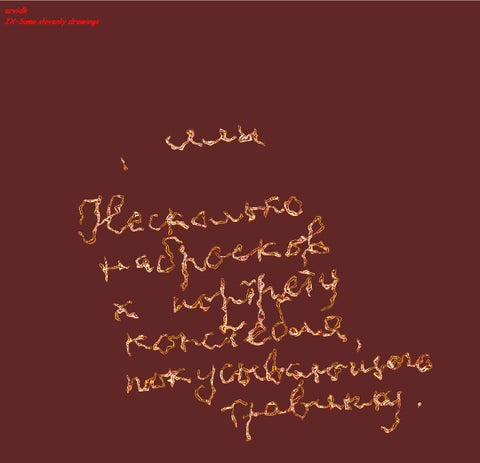 arvidk
IX-Some slovenly drawings
Несколько
набросков
к портрету
констебля,
покусывающего
травинку.